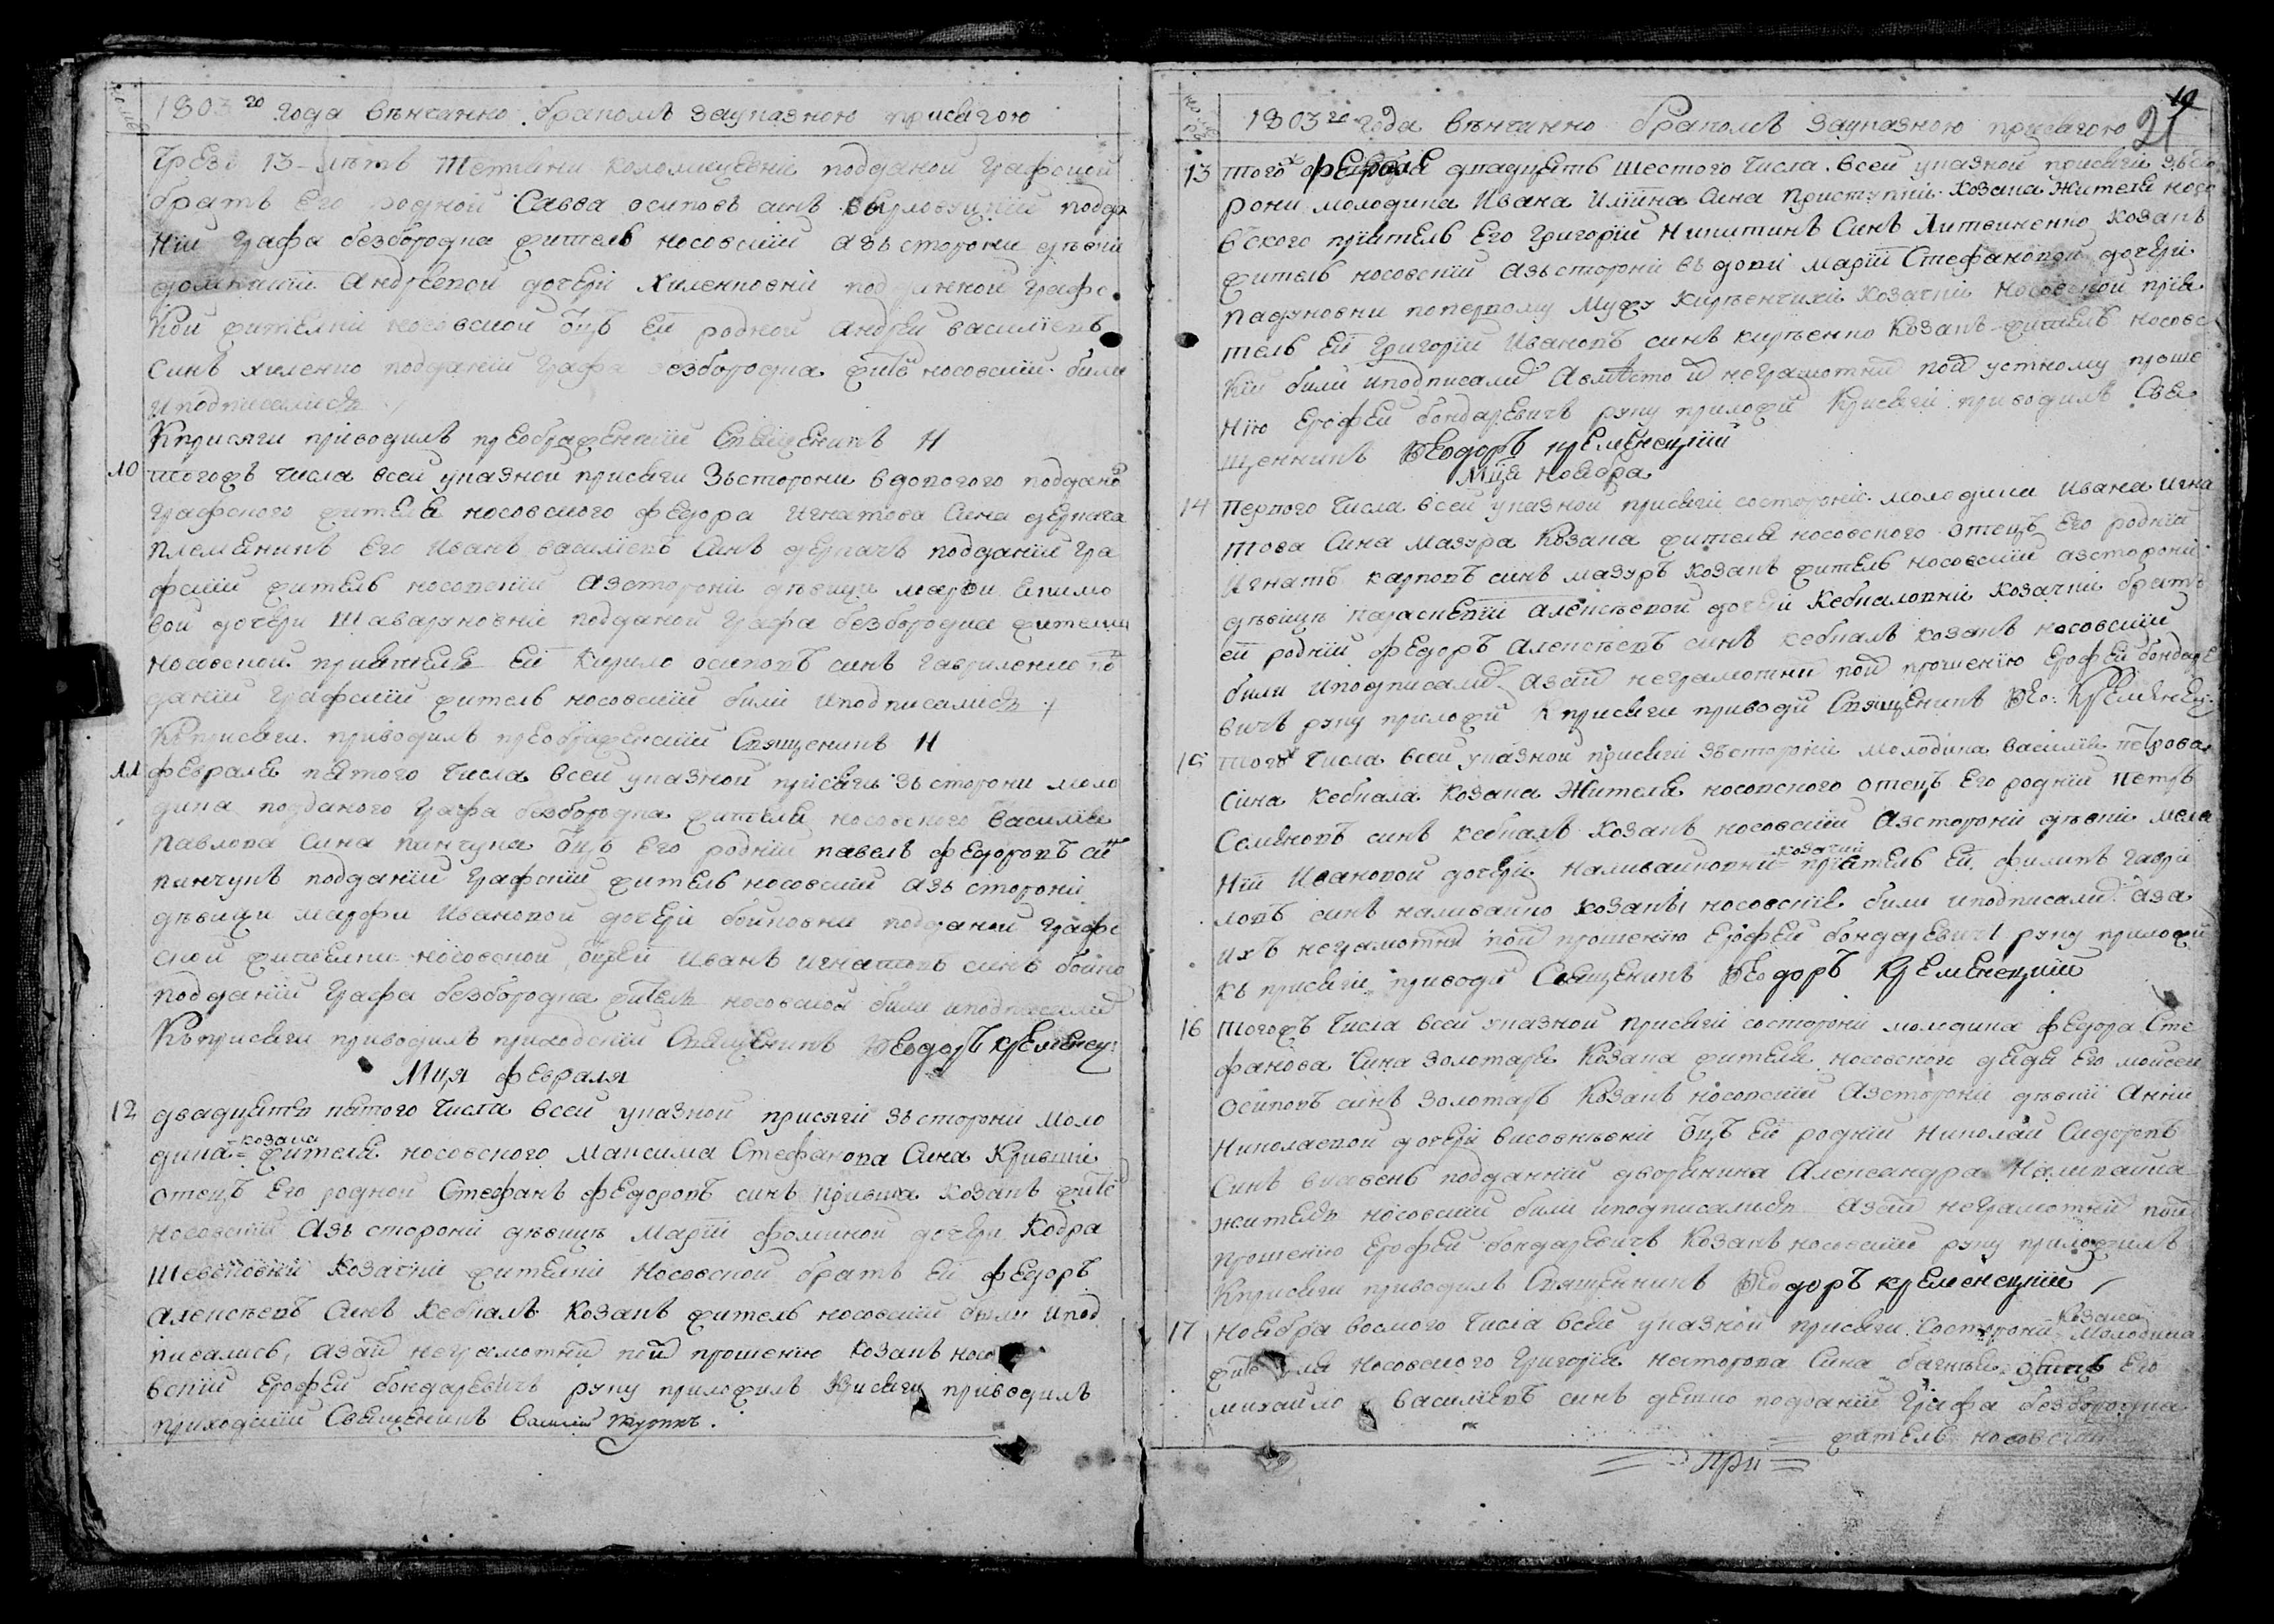 1803го года вѣнчанно бракомъ зауказною присягою
Чрезъ 13 лѣтъ Тетяни Коломицевни подданой Графской
братъ его родной Савва осиповъ синъ подда
нїи Графа безбородка житель носовскїи азъ сторони дѣвки
домникїи Андреевой дочери Хиленковнѣ подданной Графс
кои жителкѣ носовской оцъ еи родной андреи василїевъ
синъ хиленко подданїи Графа безбородка жите носовскїи били
иподписались
Кприсяги приводилъ преображенскїи Священикъ Н
10 тогожъ числа всеи указной присяги Зъсторони вдового поддано
Графского жителя носовского федора Игнатова Сина деркача
племеникъ его Иванъ василїевъ Синъ деркачъ подданїи Гра
фскїи житель носовскїи азсторони дѣвици марфи екимо
вой дочери Шаваруновнѣ подданой Графа безбородка жителки
носовской приятель еи Кирило осиповъ синъ Гавриленко по
данїи Графскїи житель носовскїи били иподписались
Къприсяги приводилъ преображенскїи Священикъ Н
11 февраля пятого числа всеи указной присяги зъсторони моло
дика подданого Графа безбородка жителя носовского василїя
павлова Сина панчука оцъ его роднїи павелъ федоровъ си
панчукъ подданїи Графскїи житель носовскїи азъ сторони
дѣвици марфи Ивановой дочери бойковни подданой Графс
ской жителки носовской, оцъ еи Иванъ Игнатовъ синъ бойко
подданїи Графа безбородка житель носовской били иподписали
Къприсяги приводилъ приходскїи Священикъ Ѳеодоръ кременец:
Мця февраля
12 двадцять пятого числа всеи указной присяги зъсторони моло
дика козака жителя носовского Максима Стефанова Сина Кривши
отецъ его родной Стефанъ федоровъ синъ кривша козакъ жите
носовскїи Азъ сторони дѣвицѣ Марїи фоминой дочери Кодра
шевсковни Козачки жителки Носовской братъ еи федоръ
алексѣевъ Синъ Кебкалъ Козакъ житель носовскїи были ипод
писались, азаи неграмотнїи пои прошенїю козакъ носо
вскїи Ерофеи бондаревичъ руку приложилъ Кприсяги приводилъ
приходскїи Священикъ Василїи
1803го года вѣнчанно бракомъ зауказною присягою 21
13 того февраля двадцять шестого числа всеи указной присяги зъсто
рони молодика Ивана Илїина Сина Приступки Козака Жителя носо
вского прїятель его Григорїи Никитинъ Синъ Литвиненко Козакъ
житель носовскїи азъсторони вдови марїи Стефановой дочери
падуковни поперво́му мужу кирѣенчихи козачки носовской прїя
тель еи Григорїи Ивановъ синъ кирѣенко Козакъ житель носовс
кїи били иподписали. Авмѣсто и неграмотнїи пои устному проше
нїю Ерофеи бондаревичъ руку приложи Кприсяги приводилъ Свя
щенникъ Ѳеодоръ кременецкїи
Мця ноября
14 первого числа всеи указной присяги состоронѣ молодика Ивана Игна
това Сина Мазура Козака жителя носовского отецъ Его роднїи
Игнатъ карповъ синъ мазуръ козакъ житель носовскїи азсторони
дѣвицѣ параскевїи алексѣевой дочери Кебкаловни козачки братъ
еи роднїи федоръ алексѣевъ синъ кебкалъ козакъ носовскїи
били иподписали азаи неграмотни пои прошенїю Ерофеи бондаре
вичъ руку приложи Кприсяги приводи Священикъ Ѳео: Кременец:
15 того числа всеи указной присяги зъсторони молодика василїя петрова
сина Кебкала Козака Жителя носовского отецъ Его роднїи петръ
Семеновъ синъ кебкалъ козакъ носовскїи Азсторони дѣвки мела
нїи Ивановой дочери Наливайковни козачки приятель Еи филипъ гаври
ловъ синъ наливайко козакъ носовскїе били иподписали аза
ихъ неграмотни пои прошенїю Ерофеи бондаревичъ руку приложи
къ присяги приводи Священикъ Ѳеодоръ Кременецкїи
16 тогожъ числа всеи указной присяги состорони молодика федора Сте
фанова Сина золотаря Козака жителя носовского дядя Его моисеи
осиповъ синъ золотаръ Козакъ носовскїи Азсторони дѣвки Анни
Николаевой дочери високѣвни оцъ Еи роднїи Николаи Сидоровъ
Синъ подданнїи дворянина Александра Наливайка
житель носовскїи били иподписались азаи неграмотнїи пои
прошенїю Ерофеи бондаревичъ Козакъ носовскїи руку приложилъ
Кприсяги приводилъ Священникъ Ѳеодоръ кременецкїи
17 ноября восмого числа всеи указной присяги состорони козака молодика
жителя носовского Григорїя несторова Сина его
михаило василїевъ синъ подданїи Графа безбородка
житель носовскїи
При